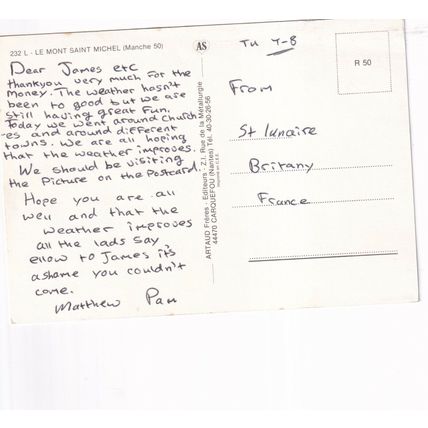 232 L - LE MONT SAINT MICHEL (Manche 50)
Dear James etc
thankyou very much for the
money. The weather hasn't
been to good but we are
still having great fun.
Today we went around church
-es and around different
towns. We are all hoping
that the weather improves.
We should be visiting
the Picture on the Postcard.
Hope you are all
well and that the
weather improves
all the lads say
ellow to James its
ashame you couldn't
come.
Matthew Pam
AS
ARTAUD Frères - Editeurs - Z.I. Rue de la Métallurgie
44470 CARQUEFOU (Nantes) Tél. 40-30-26-56
TU 4-8
R 50
From
St lunaire
Britany
France